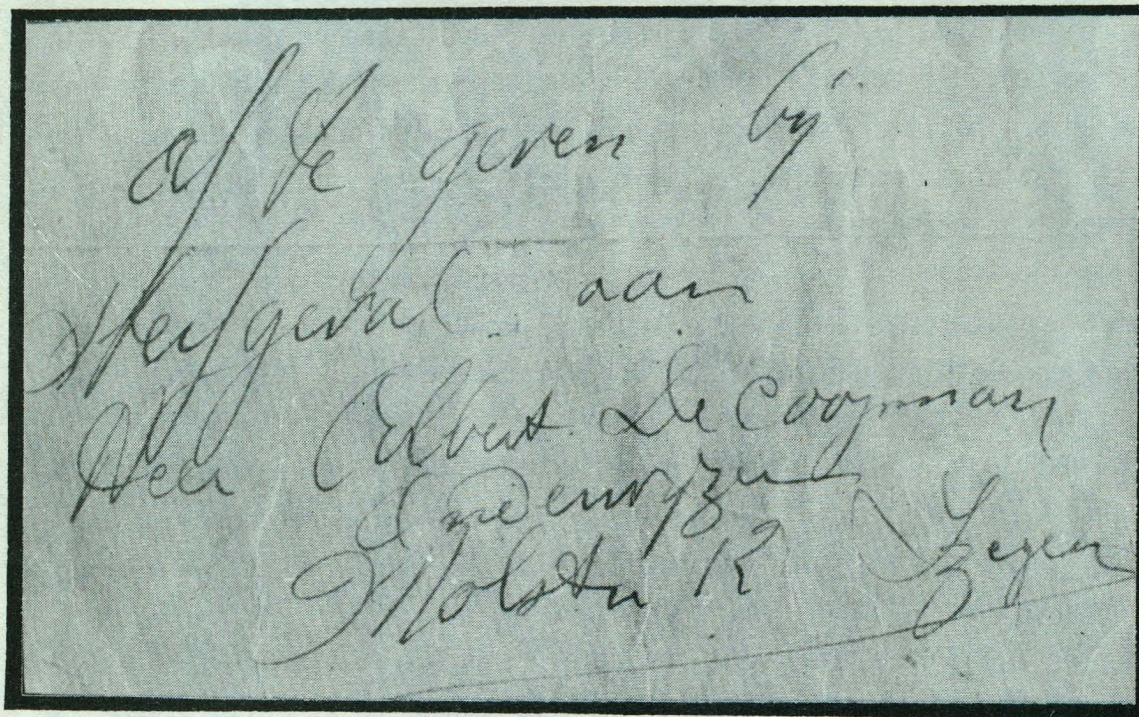 af te geven bij
sterfgeval aan
Heer Albert De Cooman
Onderwijzer
Molstr 12 Izegem